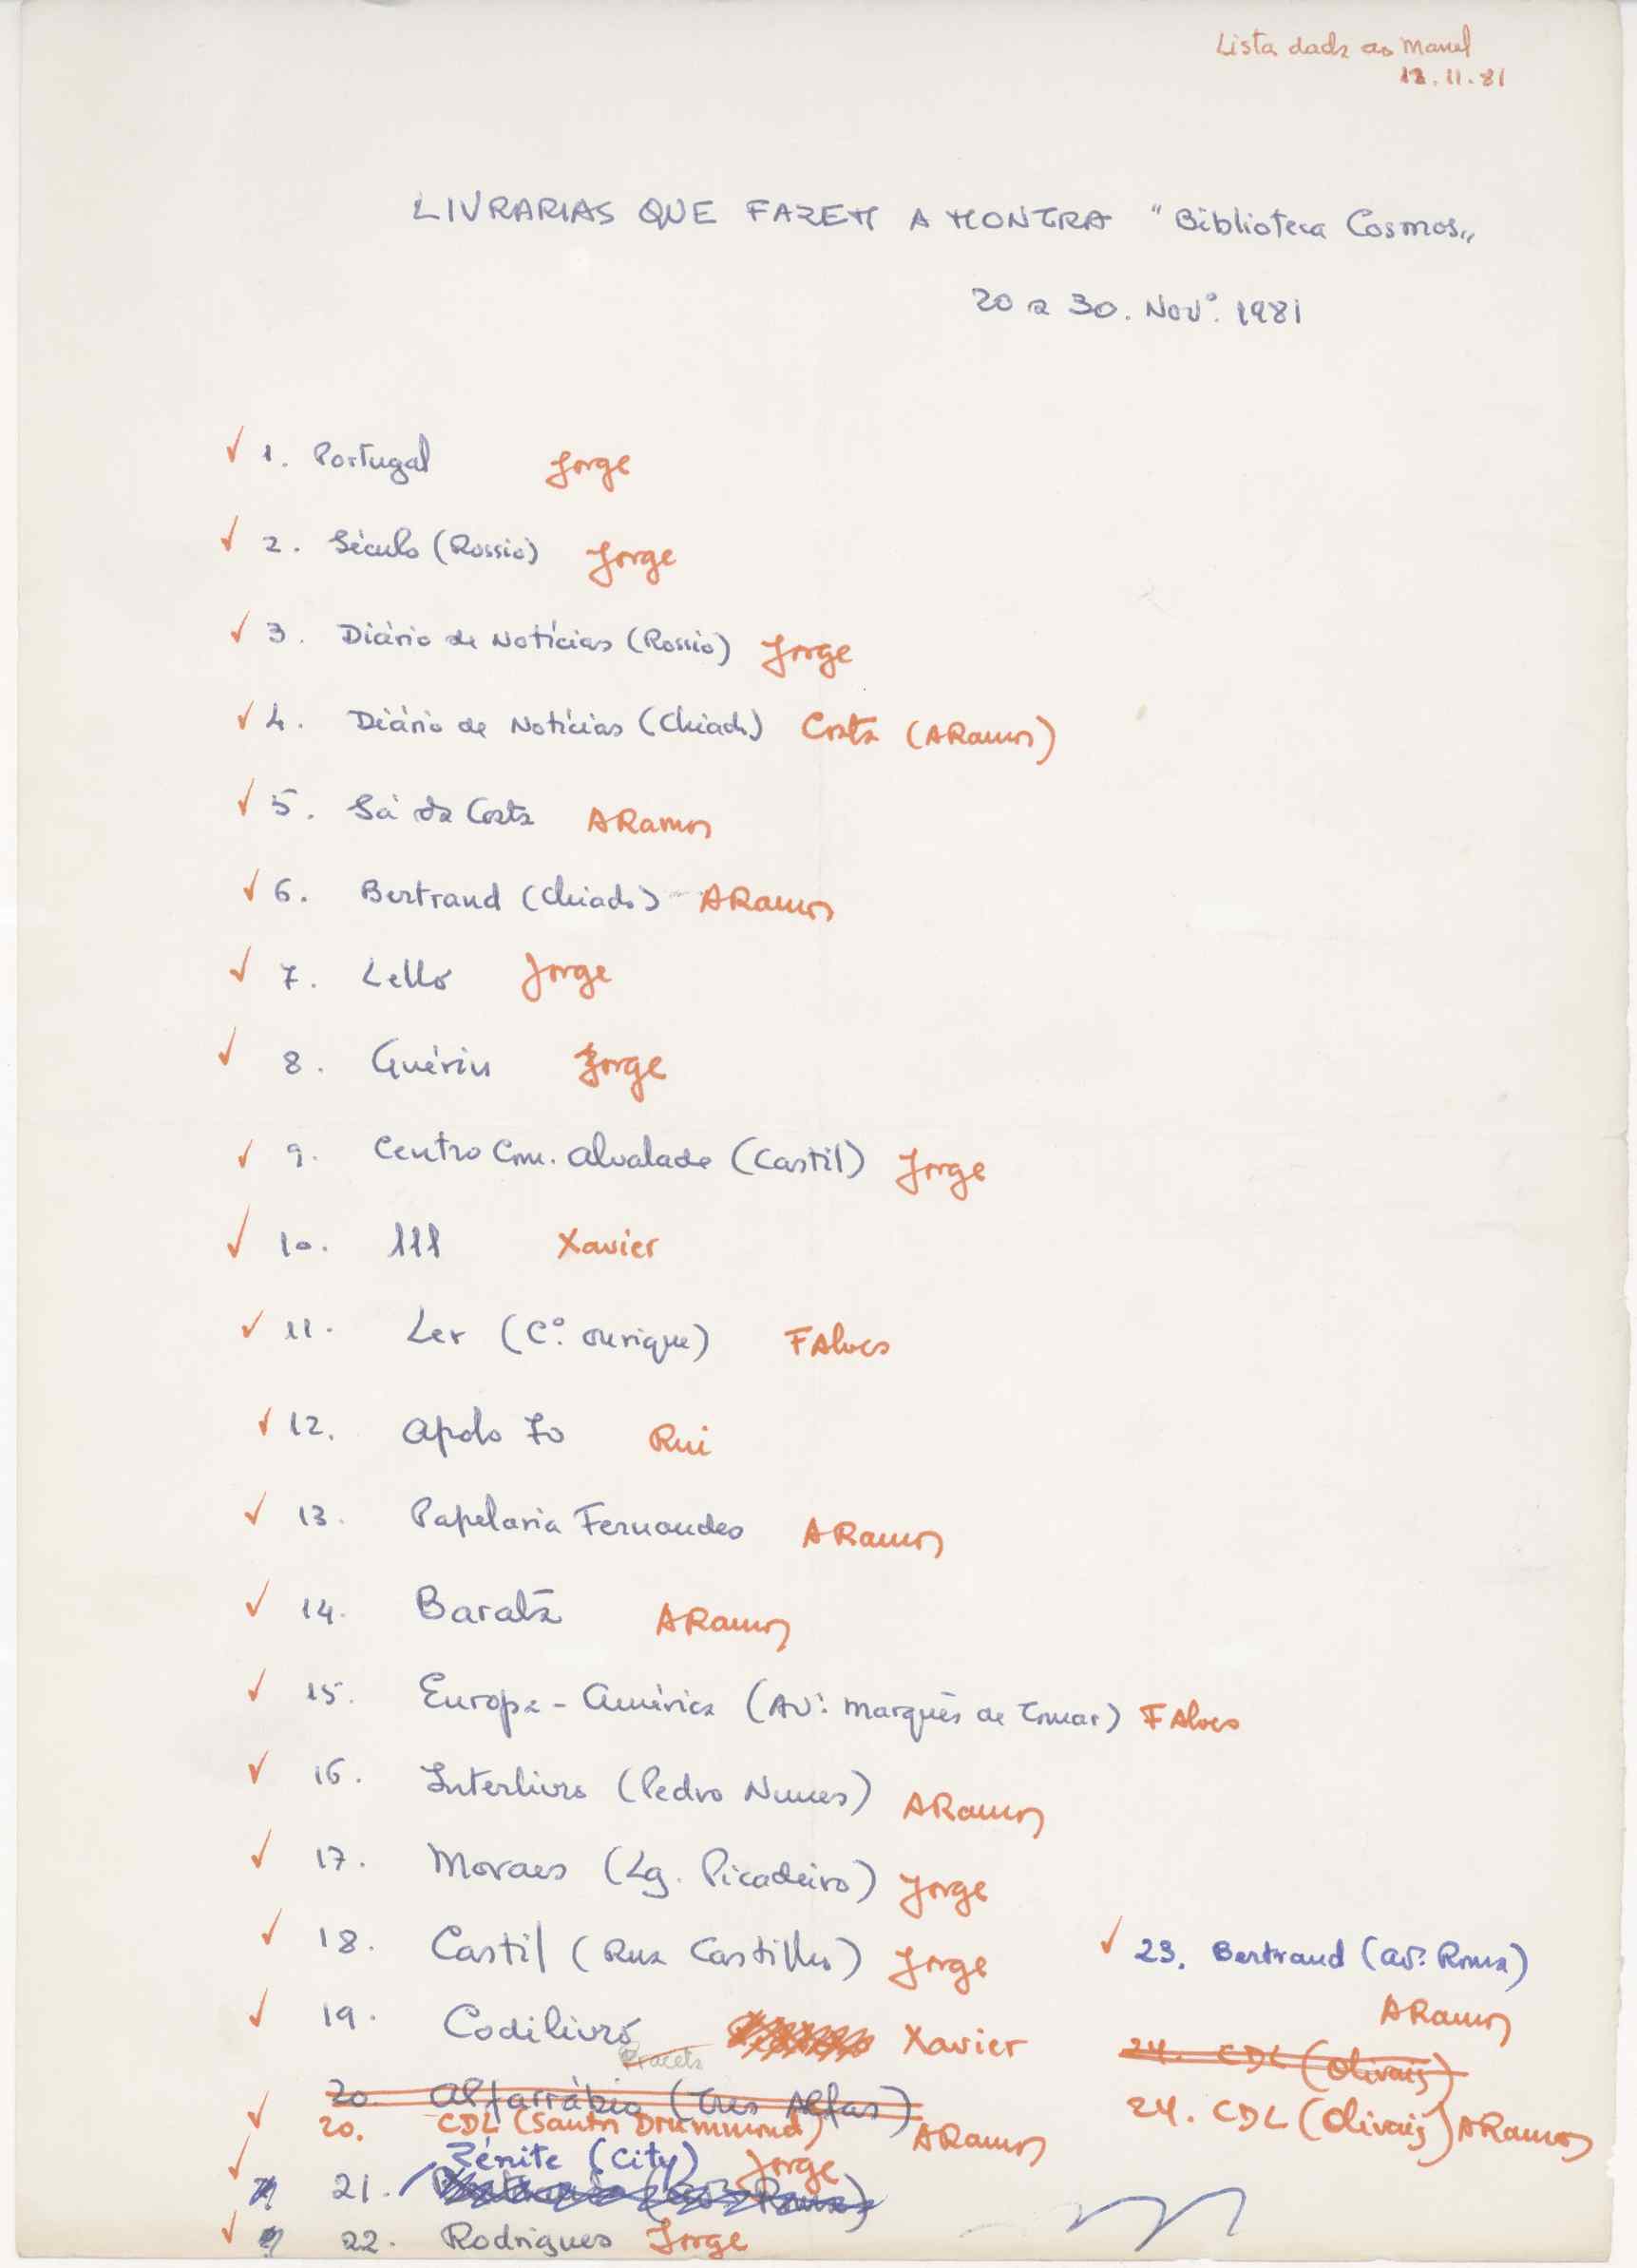 Lista dada ao Manel
12.11.81
LIVRARIAS QUE FAZEM A MONTRA "Biblioteca Cosmos"
20 a 30. Nov.º 1981
✓ 1. Portugal Jorge
✓ 2. Século (Rossio) Jorge
✓ 3. Diário de Notícias (Rossio) Jorge
✓ 4. Diário de Notícias (Chiado) Costa (ARamos)
✓ 5. Sá da Costa ARamos
✓ 6. Bertrand (Chiado) ARamos
✓ 7. Lello Jorge
✓ 8. Guérin Jorge
✓ 9. Centro Com. Alvalade (Castil) Jorge
✓ 10. 111 Xavier
✓ 11. Ler (C.º Ourique) FAlves
✓ 12. Apolo 70 Rui
✓ 13. Papelaria Fernandes ARamos
✓ 14. Barata ARamos
✓ 15. Europa-América (Av.: Marquês de Tomar) FAlves
✓ 16. Interlivro (Pedro Nunes) ARamos
✓ 17. Moraes (Lg. Picadeiro) Jorge
✓ 18. Castil (Rua Castilho) Jorge
✓ 19. Codilivro Xavier
Praceta
20. Alfarrábio (Três Alfas)
✓ 20. CDL (Santos Drummond) ARamos
Zénite (City) Jorge
✓ 21.
✓ 22. Rodrigues Jorge
✓ 23. Bertrand (Av.: Roma)
ARamos
24. CDL (Olivais)
24. CDL (Olivais) ARamos